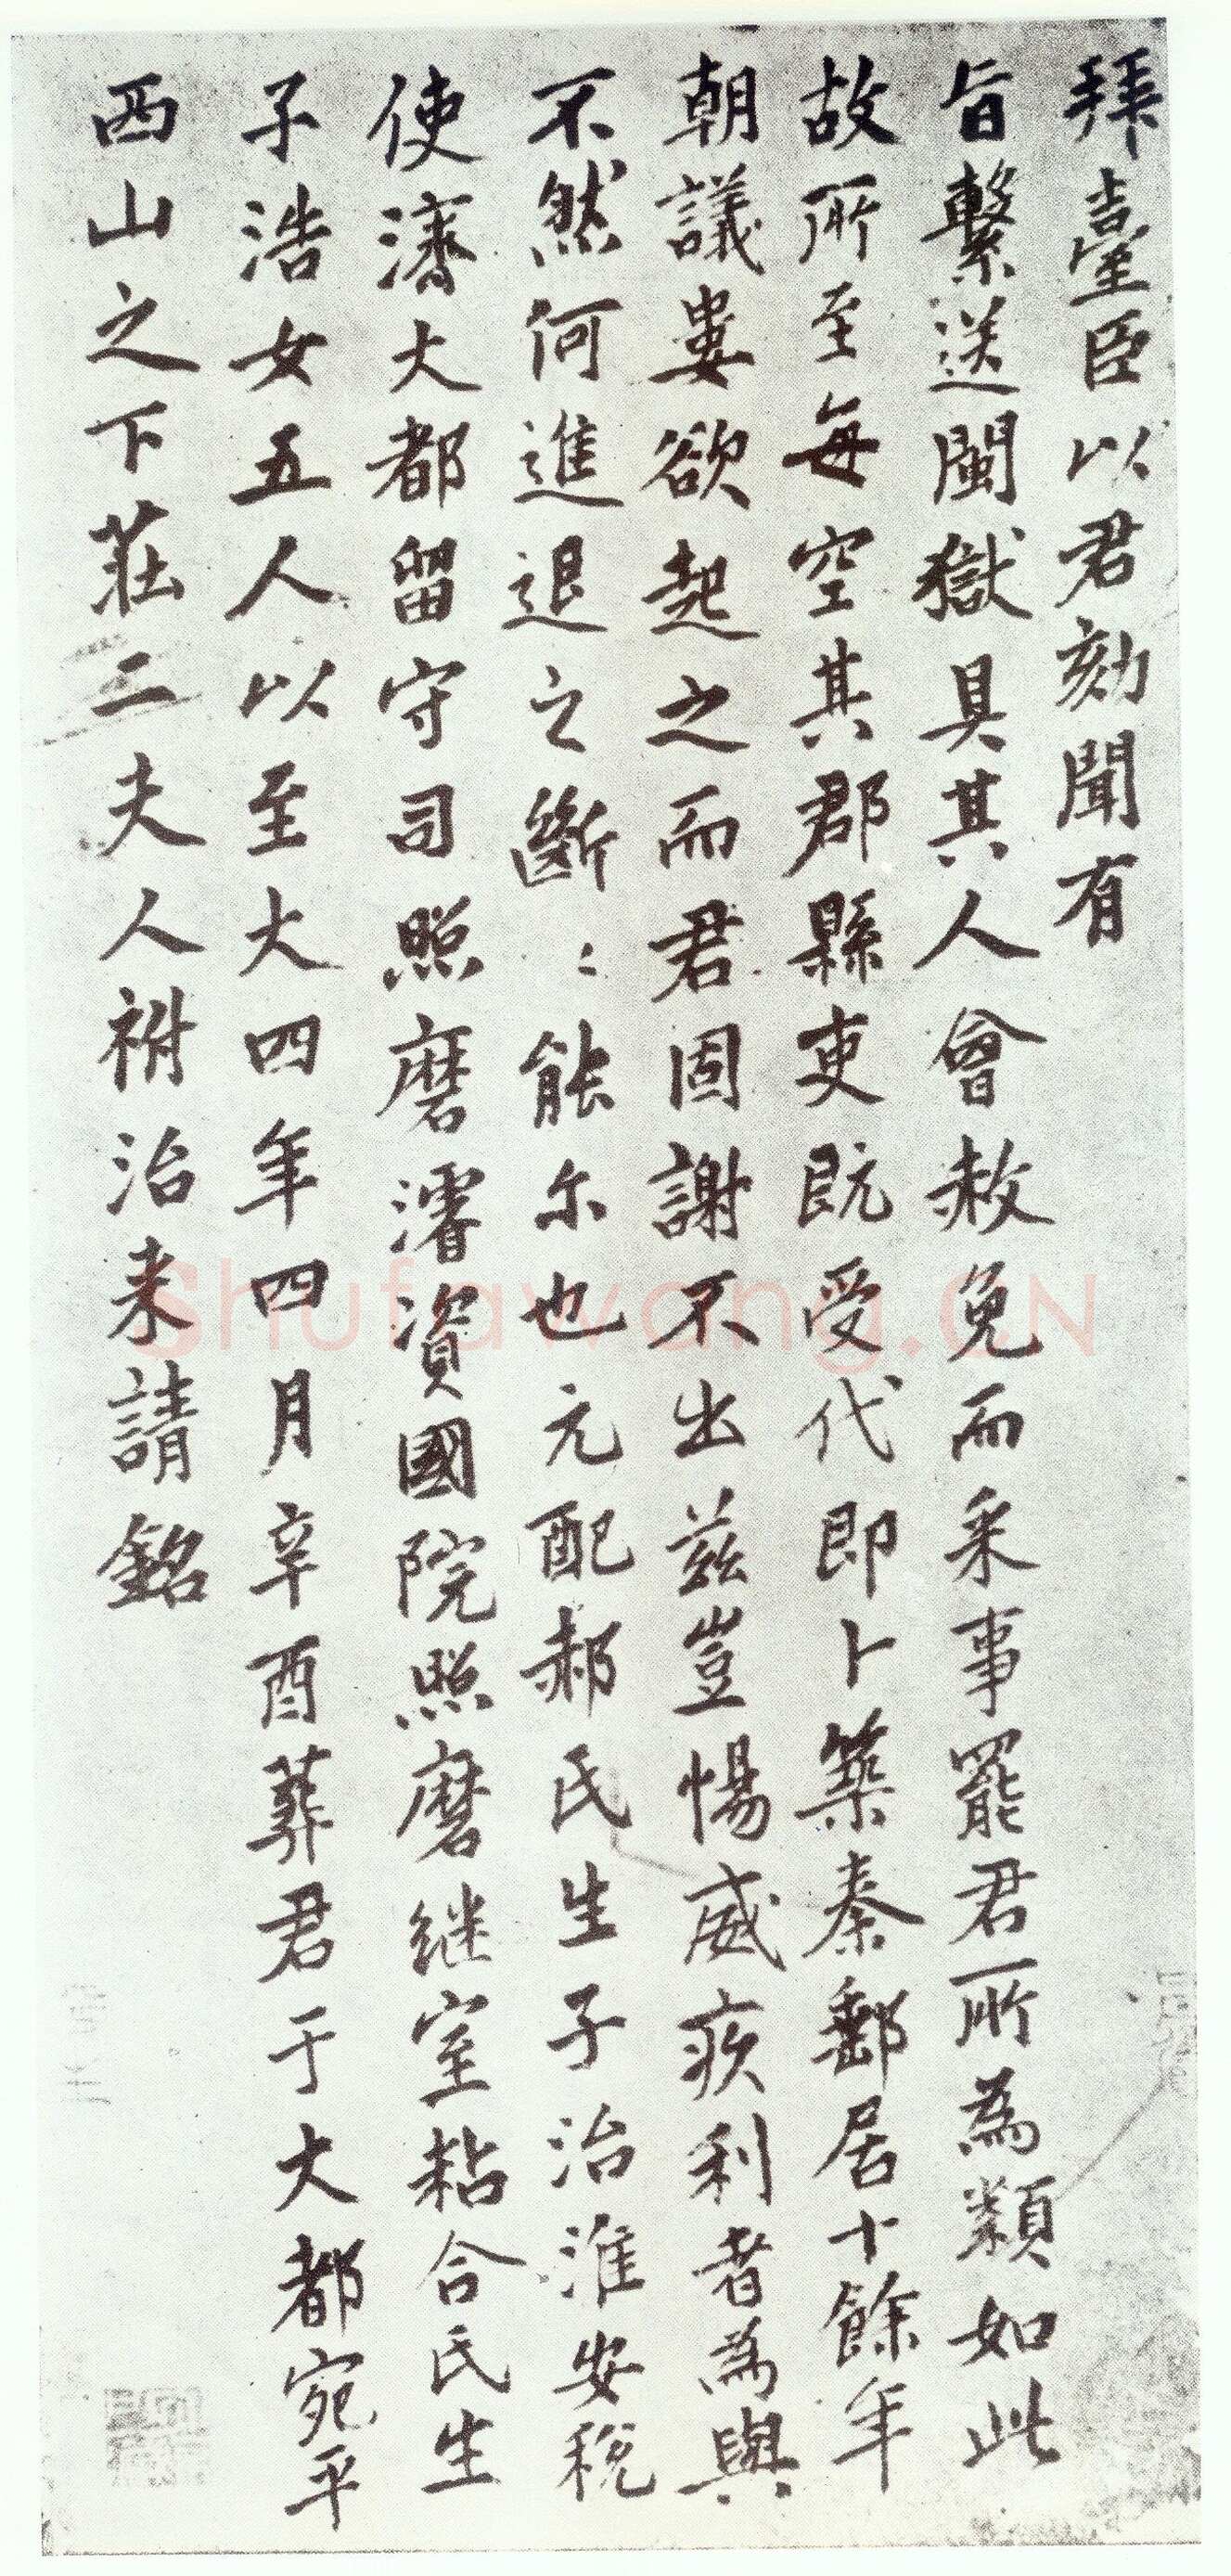 拜臺臣以君劾聞有
旨繫送閩獄具其人會赦免而釆事罷君所為類如此
故所至每空其郡縣吏既受代即卜築秦郵居十餘年
朝議婁欲起之而君固謝不出茲豈惕威疚利者為與
不然何進退之斷〻能尔也元配郝氏生子治淮安稅
使濟大都留守司照磨濬資國院照磨继室粘合氏生
子浩女五人以至大四年四月辛酉葬君于大都宛平
西山之下莊二夫人祔治来請銘
Shufawang.CN